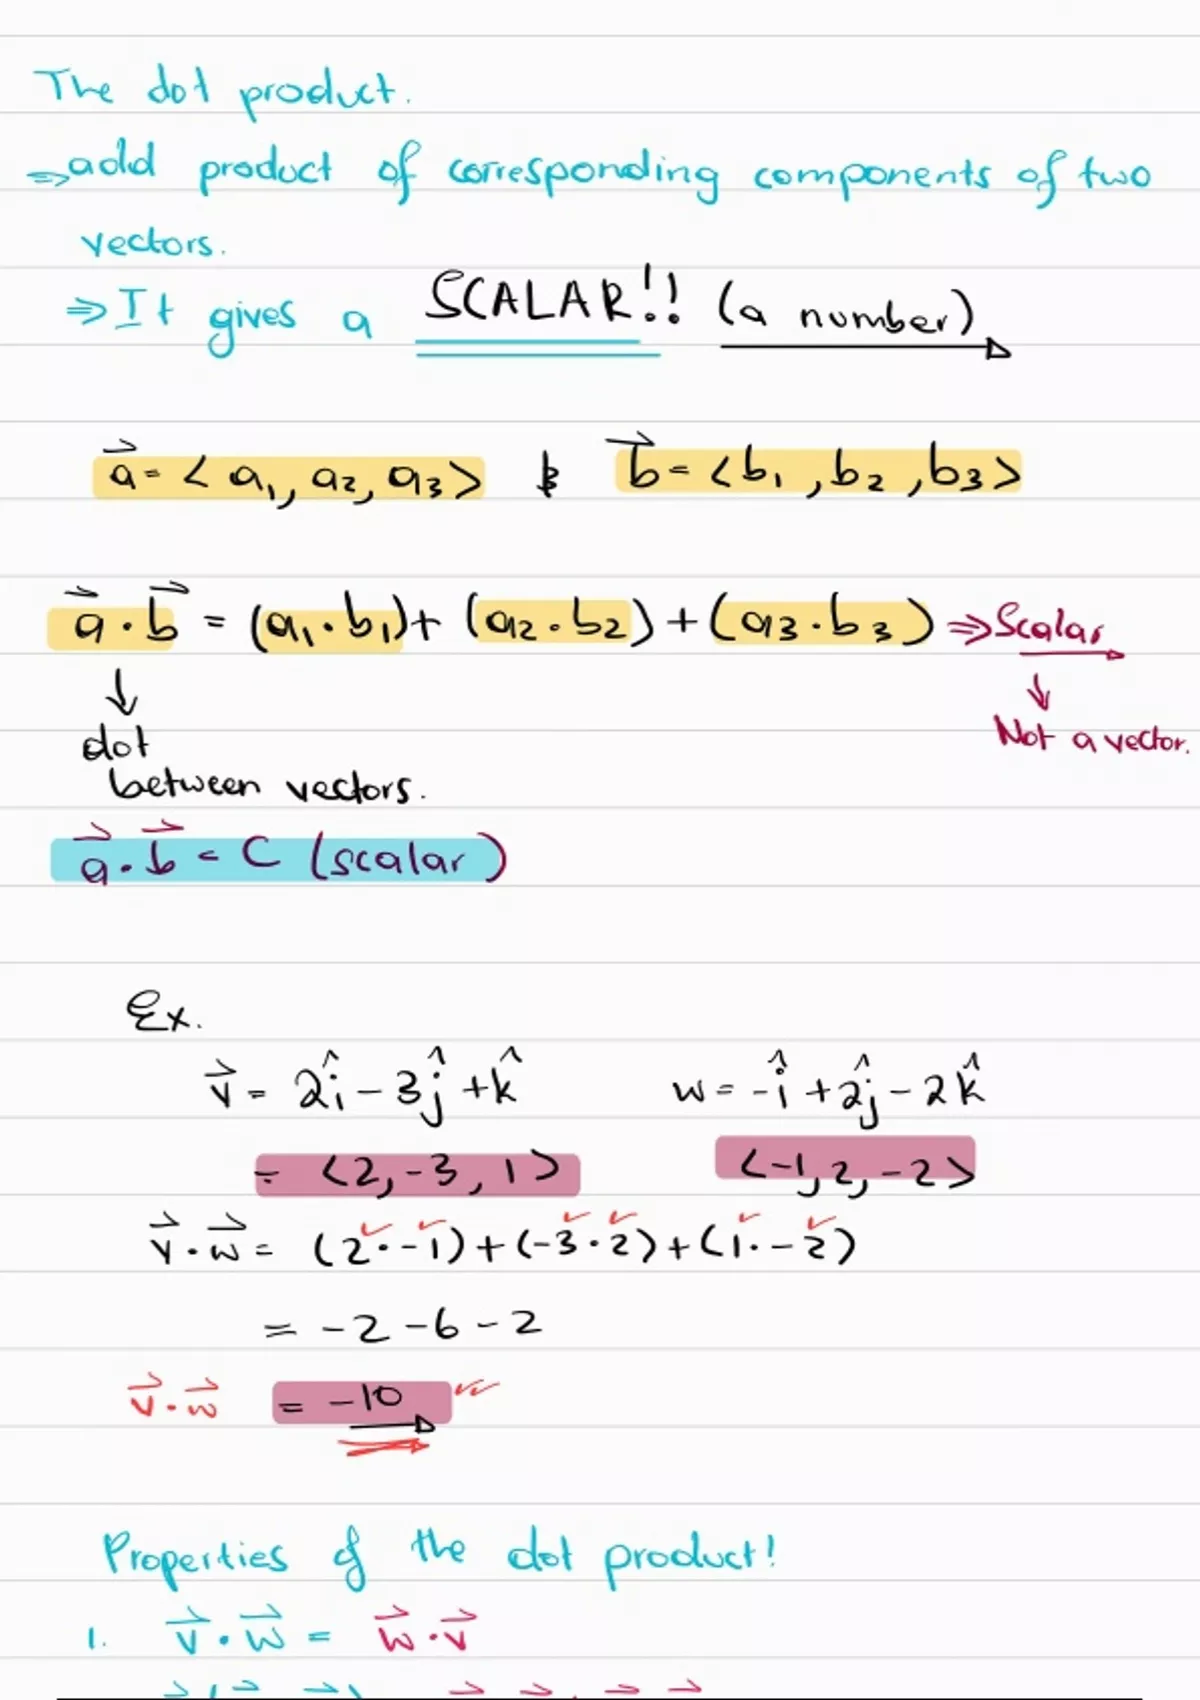 The dot product.
⇒ add product of corresponding components of two
vectors.
⇒ It gives a SCALAR!! (a number)
a⃗ = <a₁, a₂, a₃> & b⃗ = <b₁, b₂, b₃>
a⃗ · b⃗ = (a₁·b₁) + (a₂·b₂) + (a₃·b₃) ⇒ Scalar
↓ ↓
dot Not a vector.
between vectors.
a⃗ · b⃗ = C (scalar)
Ex.
v⃗ = 2î - 3ĵ + k̂ w = -î + 2ĵ - 2k̂
= <2, -3, 1> <-1, 2, -2>
v⃗ · w⃗ = (2·-1) + (-3·2) + (1·-2)
= -2 -6 -2
v⃗ · w⃗ = -10
Properties of the dot product!
1. v⃗ · w⃗ = w⃗ · v⃗